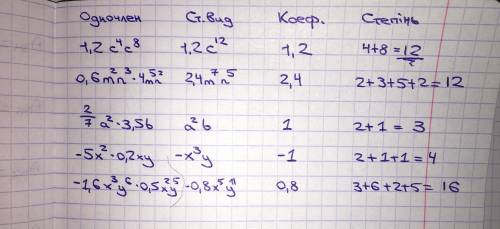 Одночлен Ст.вид Коеф. Степінь
1,2 c⁴c⁸ 1,2 c¹² 1,2 4+8=12
0,6m²n³·4m⁵n² 2,4m⁷n⁵ 2,4 2+3+5+2=12
2/7 a²·3,5b a²b 1 2+1=3
-5x²·0,2xy -x³y -1 2+1+1=4
-1,6x³y⁶·0,5x²y⁵ -0,8x⁵y¹¹ 0,8 3+6+2+5=16